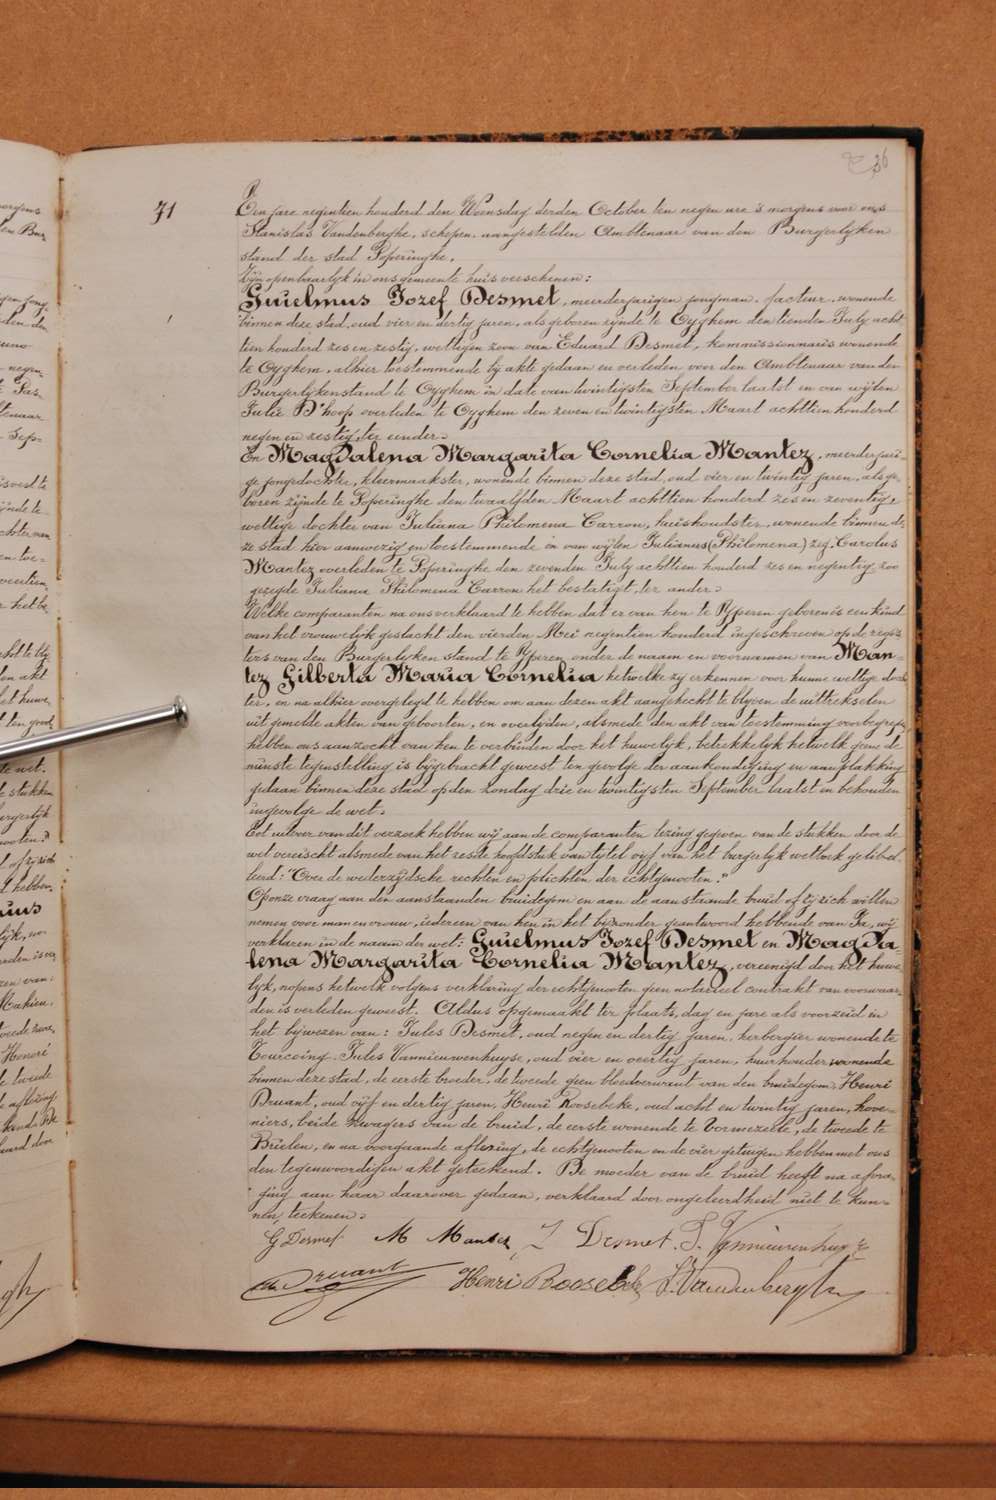 36
71
Ten jare negentien honderd den Woensdag derden October ten negen ure 's morgens voor ons
Stanislas Vandenberghe, schepen, aangestelden Ambtenaar van den Burgerlyken
stand der stad Poperinghe,
Zijn openbaarlyk in ons gemeente huis verschenen:
Guielmus Jozef Desmet, meerderjarigen jongman, facteur, wonende
binnen deze stad, oud vier en dertig jaren, als geboren zynde te Oyghem den tienden July acht
tien honderd zes en zestig, wettigen zoon van Eduard Desmet, kommissionnaris wonende
te Oyghem, alhier toestemmende by akte gedaan en verleden voor den Ambtenaar van den
Burgerlykenstand te Oyghem in date van twintigsten September laatst en van wijlen
Julie D'hoop overleden te Oyghem den zeven en twintigsten Maart achttien honderd
negen en zestig, ter eender.
En Magdalena Margarita Cornelia Mantez, meerderjari-
ge jongedochter, kleermaakster, wonende binnen deze stad, oud vier en twintig jaren, als ge-
boren zijnde te Poperinghe den twaalfden Maart achttien honderd zes en zeventig,
wettige dochter van Juliana Philomena Carron, huishoudster, wonende binnen de-
ze stad hier aanwezig en toestemmende en van wijlen Julianus (Philomena) zeg. Carolus
Mantez overleden te Poperinghe den zevenden July achttien honderd zes en negentig zoo
gezegde Juliana Philomena Carron het bestatigt, ter ander.
Welke comparanten na ons verklaard te hebben dat er van hen te Yperen geboren is een kind
van het vrouwelyk geslacht den vierden Mei negentien honderd ingeschreven op de regis-
ters van den Burgerlyken stand te Yperen onder de naam en voornamen van Man-
tez Gilberta Maria Cornelia hetwelke zy erkennen voor hunne wettige doch
ter, en na alhier overgelegd te hebben om aan dezen akt aangehecht te blyven de uittrekselen
uit gemelde akten van geboorten, en overlyden, alsmede den akt van toestemming voorbegrepen
hebben ons aanzocht van hen te verbinden door het huwelyk, betrekkelyk hetwelk geene de
minste tegenstelling is bygebracht geweest ten gevolge der aankondiging en aanplakking
gedaan binnen deze stad op den zondag drie en twintigsten September laatst en behouden
ingevolge de wet.
Tot uitvoer van dit verzoek hebben wij aan de comparanten lezing gegeven van de stukken door de
wet vereischt alsmede van het zesde hoofdstuk van tytel vyf van het burgerlyk wetboek gelibel-
leerd: "Over de wederzydsche rechten en plichten der echtgenooten."
Op onze vraag aan den aanstaanden bruidegom en aan de aanstaande bruid of zy zich willen
nemen voor man en vrouw, iedereen van hen in het byzonder geantwoord hebbende van Ja, wij
verklaren in de naam der wet: Guielmus Jozef Desmet en Magda-
lena Margarita Cornelia Mantez, vereenigd door het huwe-
lyk, nopens hetwelk volgens verklaring der echtgenooten geen notarieel contrakt van voorwaar-
den is verleden geweest. Aldus opgemaakt ter plaats, dag en jare als voorzeid in
het bijwezen van: Jules Desmet, oud negen en dertig jaren, herbergier wonende te
Tourcoing, Jules Vannieuwenhuyse, oud vier en veertig jaren, huurhouder wonende
binnen deze stad, de eerste broeder, de tweede geen bloedverwant van den bruidegom, Henri
Druant, oud vijf en dertig jaren, Henri Roosebeke, oud acht en twintig jaren, hove-
niers, beide zwagers van de bruid, de eerste wonende te Vormezeele, de tweede te
Brielen, en na voorgaande aflezing, de echtgenooten en de vier getuigen hebben met ons
den tegenwoordigen akt geteekend. De moeder van de bruid heeft na afvra-
ging aan haar daarover gedaan, verklaard door ongeleerdheid niet te kun-
nen teekenen.
G Desmet M Mantez J Desmet. J. Vannieuwenhuyze
Druant Henri Roosebeke S. Vandenberghe